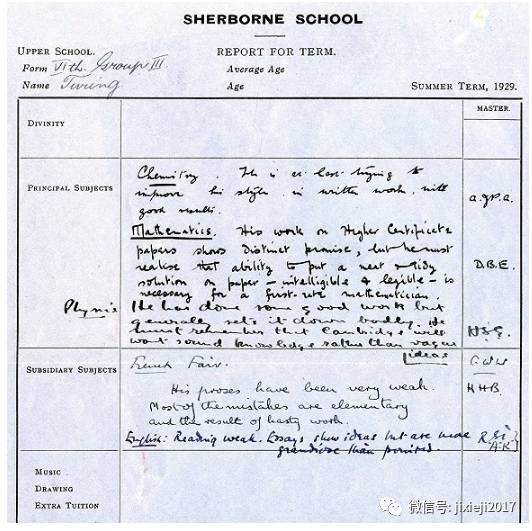 SHERBORNE SCHOOL
UPPER SCHOOL.
REPORT FOR TERM.
Form VIth. Group III.
Average Age
Name Turing
Age
SUMMER TERM, 1929.
MASTER.
DIVINITY
PRINCIPAL SUBJECTS
Chemistry. He is at last trying to
improve his style in written work, with
good results.
A.J.P.A.
Mathematics. His work on Higher Certificate
papers shows distinct promise, but he must
realise that ability to put a neat & tidy
solution on paper - intelligible & legible - is
necessary for a first-rate mathematician.
D.B.E.
Physics He has done some good work but
generally sets it down badly. He
must remember that Cambridge will
want sound knowledge rather than vague
ideas
H.S.G.
SUBSIDIARY SUBJECTS
French Fair.
His proses have been very weak.
Most of the mistakes are elementary
and the result of hasty work.
H.H.B.
English: Reading weak. Essays show ideas but are more
grandiose than
MUSIC
DRAWING
EXTRA TUITION
微信号: jixieji2017